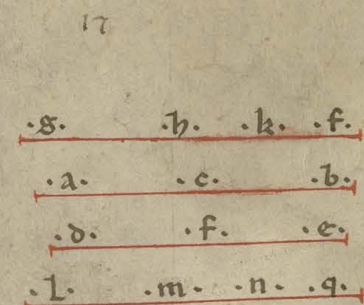 17
.g. .h. .k. .f.
.a. .c. .b.
.d. .f. .e.
.l. .m. .n. .q.